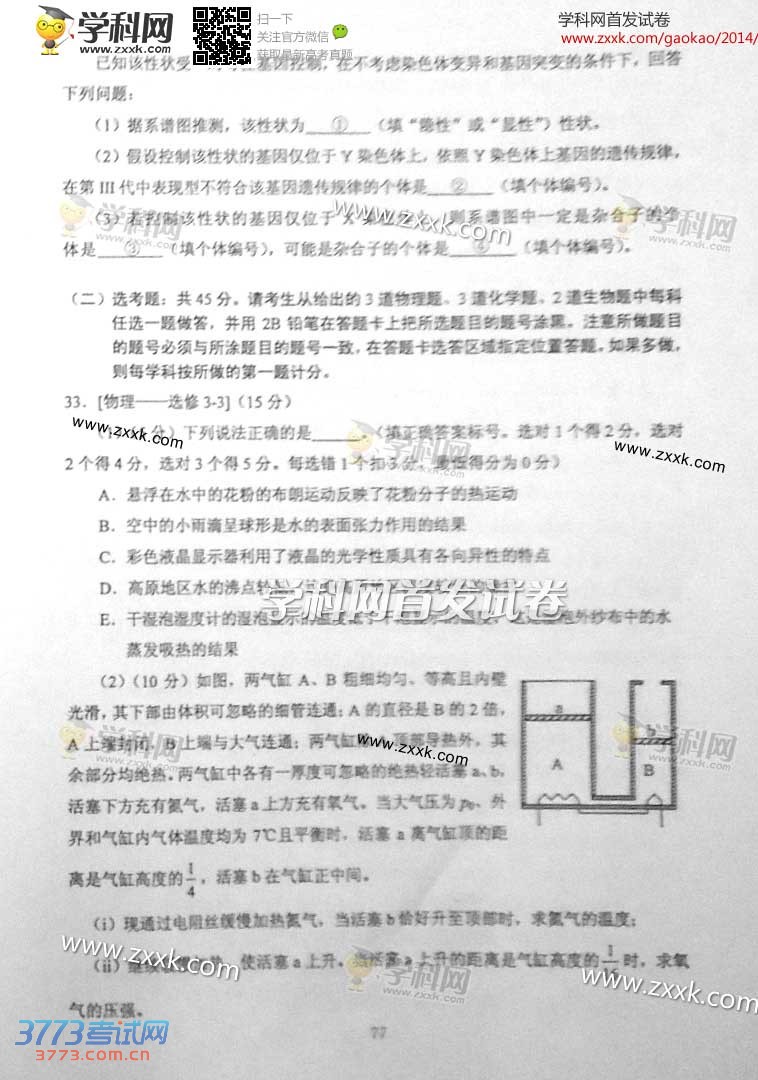 学科网
www.zxxk.com
扫一下
关注官方微信
获取最新高考真题
学科网首发试卷
www.zxxk.com/gaokao/2014/
已知该性状受 基因控制，在不考虑染色体变异和基因突变的条件下，回答
下列问题：
（1）据系谱图推测，该性状为 ① （填“隐性”或“显性”）性状。
（2）假设控制该性状的基因仅位于 Y 染色体上，依照 Y 染色体上基因的遗传规律，
在第 III 代中表现型不符合该基因遗传规律的个体是 ② （填个体编号）。
（3）若控制该性状的基因仅位于 X 则系谱图中一定是杂合子的个
体是 ③ （填个体编号），可能是杂合子的个体是 ④ （填个体编号）。
（二）选考题：共 45 分。请考生从给出的 3 道物理题、3 道化学题、2 道生物题中每科
任选一题做答，并用 2B 铅笔在答题卡上把所选题目的题号涂黑。注意所做题目
的题号必须与所涂题目的题号一致，在答题卡选答区域指定位置答题。如果多做，
则每学科按所做的第一题计分。
33．[物理——选修 3-3]（15 分）
分）下列说法正确的是 （填正确答案标号。选对 1 个得 2 分，选对
2 个得 4 分，选对 3 个得 5 分。每选错 1 个扣 3 分，最低得分为 0 分）
A．悬浮在水中的花粉的布朗运动反映了花粉分子的热运动
B．空中的小雨滴呈球形是水的表面张力作用的结果
C．彩色液晶显示器利用了液晶的光学性质具有各向异性的特点
D．高原地区水的沸点较
学科网首发试卷
E．干湿泡湿度计的湿泡显示的温度 外纱布中的水
蒸发吸热的结果
（2）（10 分）如图，两气缸 A、B 粗细均匀、等高且内壁
光滑，其下部由体积可忽略的细管连通；A 的直径是 B 的 2 倍，
A 上端封闭，B 上端与大气连通；两气缸 顶部导热外，其
余部分均绝热。两气缸中各有一厚度可忽略的绝热轻活塞 a、b，
活塞下方充有氮气，活塞 a 上方充有氧气。当大气压为 p₀、外
界和气缸内气体温度均为 7℃且平衡时，活塞 a 离气缸顶的距
离是气缸高度的 1/4，活塞 b 在气缸正中间。
a
b
A
B
（i）现通过电阻丝缓慢加热氮气，当活塞 b 恰好升至顶部时，求氮气的温度；
（ii）继续 使活塞 a 上升，当活塞 a 上升的距离是气缸高度的 时，求氧
气的压强。
77
3773考试网
3773.com.cn